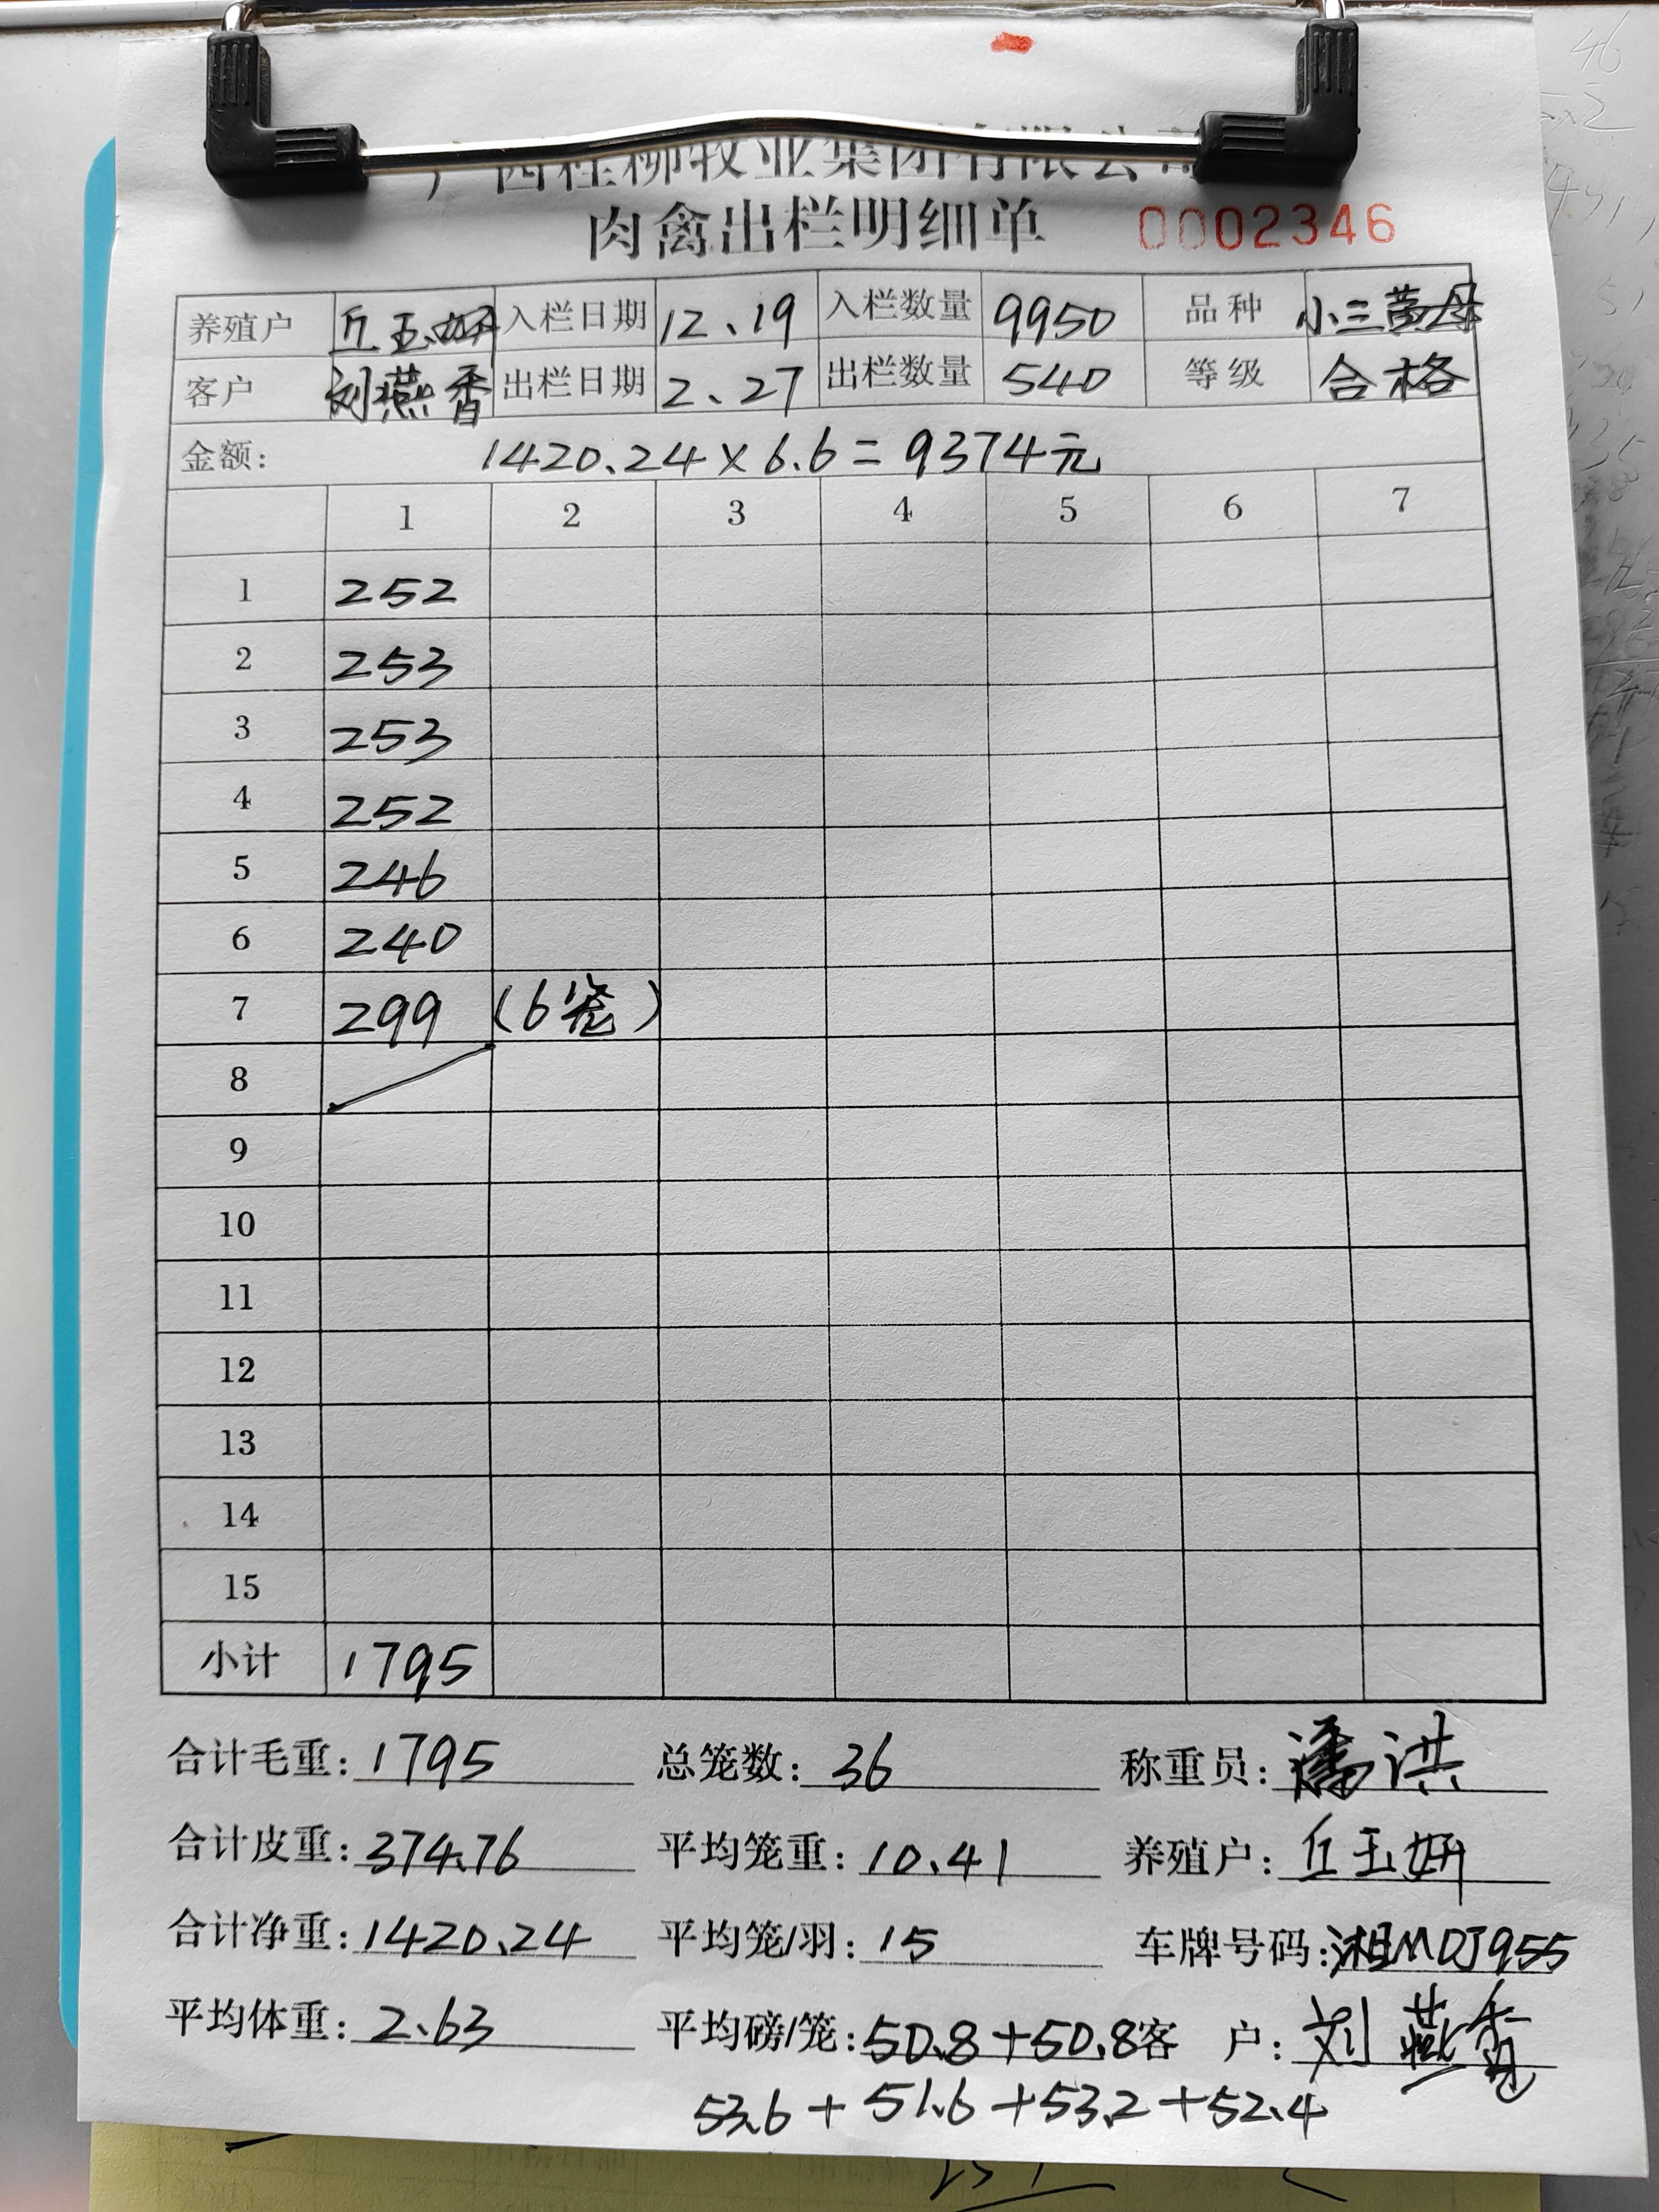 广西桂柳牧业集团有限公司
肉禽出栏明细单 0002346
养殖户 丘玉妍 入栏日期 12.19 入栏数量 9950 品种 小三黄母
客户 刘燕香 出栏日期 2.27 出栏数量 540 等级 合格
金额: 1420.24×6.6=9374元
1 2 3 4 5 6 7
1 252
2 253
3 253
4 252
5 246
6 240
7 299 (6笼)
8
9
10
11
12
13
14
15
小计 1795
合计毛重: 1795 总笼数: 36 称重员: 潘洪
合计皮重: 374.76 平均笼重: 10.41 养殖户: 丘玉妍
合计净重: 1420.24 平均笼/羽: 15 车牌号码: 湘MDJ955
平均体重: 2.63 平均磅/笼: 50.8+50.8 客户: 刘燕香
53.6+51.6+53.2+52.4